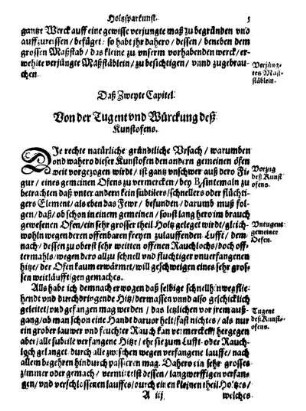 Holtzsparkunst. 3
gantze Werck auff eine gewisse verjungte maß zu begründen vnd
auffzureissen / befüget: so habt jhr dahero / dessen / beneben dem
grossen Maßstab / das kleine zu vnserm vorhabenden werck / er-
wehlte verjüngte Maßstäblein / zu besichtigen / vnd zugebrau-
chen.
Verjüng-
tes Maß-
stäblein.
Daß Zweyte Capitel.
Von der Tugent vnd Würckung deß
Kunstofens.
Die rechte natürliche gründliche Vrsach / warumben
vnd wahero dieser Kunstofen den andern gemeinen öfen
weit vorgezogen wird / ist gantz vnschwer auß dero Fi-
gur / eines gemeinen Ofens zu vermercken / bey
betrachten daß vnter andern kein subtilers / schnellers oder flüchti-
gers Element / als eben das Fewr / befunden / darumb muß fol-
gen / daß / ob schon in einem gemeinen / sonst lang hero im brauch
gewesenen Ofen / ein sehr grosser theil Holtz gelegt wird / gleich-
wohln wegen deren offenbaren freyen zulauffenden Lufft / dem-
nach / dessen zu oberst sehr weitten offenen Rauchlochs / doch off-
termahls / wegen dero allzu schnell vnd fluchtiger vnuerfangener
hitze / der Ofen kaum erwärmet / will geschweigen eines sehr gros-
sen weitläufftigen gemaches.
Vorzug
deß Kunst
ofens.
Vntugent
gemeiner
Oefen.
Als habe ich demnach erwogen daß selbige schnell hinwegflie-
hendt vnd durchdringende Hitz / dermassen vnd also geschicklich
geleitet / vnd gefangen mag werden / das letzlichen vor jrem auß-
gang / ob man schon eine Handt daruor helt / fast nichts / als nur
ein grober lauwer vnd feuchter Rauch kan vermerckt / hergegen
aber / alle subtile verfangene Hitz / ehe sie zum Lufft- oder Rauch-
loch gelanget / durch alle zwischen wegen verfangene lauffe / nach
allem begehren hindurch passieren mag. Also / daß ein sehr grosses
zimmer oder gemach / vermittelst dessen / langwerffigen verfan-
gens / vnd verschlossenen lauffes / durch ein en kleinen theil Holtzes /
Tugent
deß Kunst-
ofens.
A iij welches